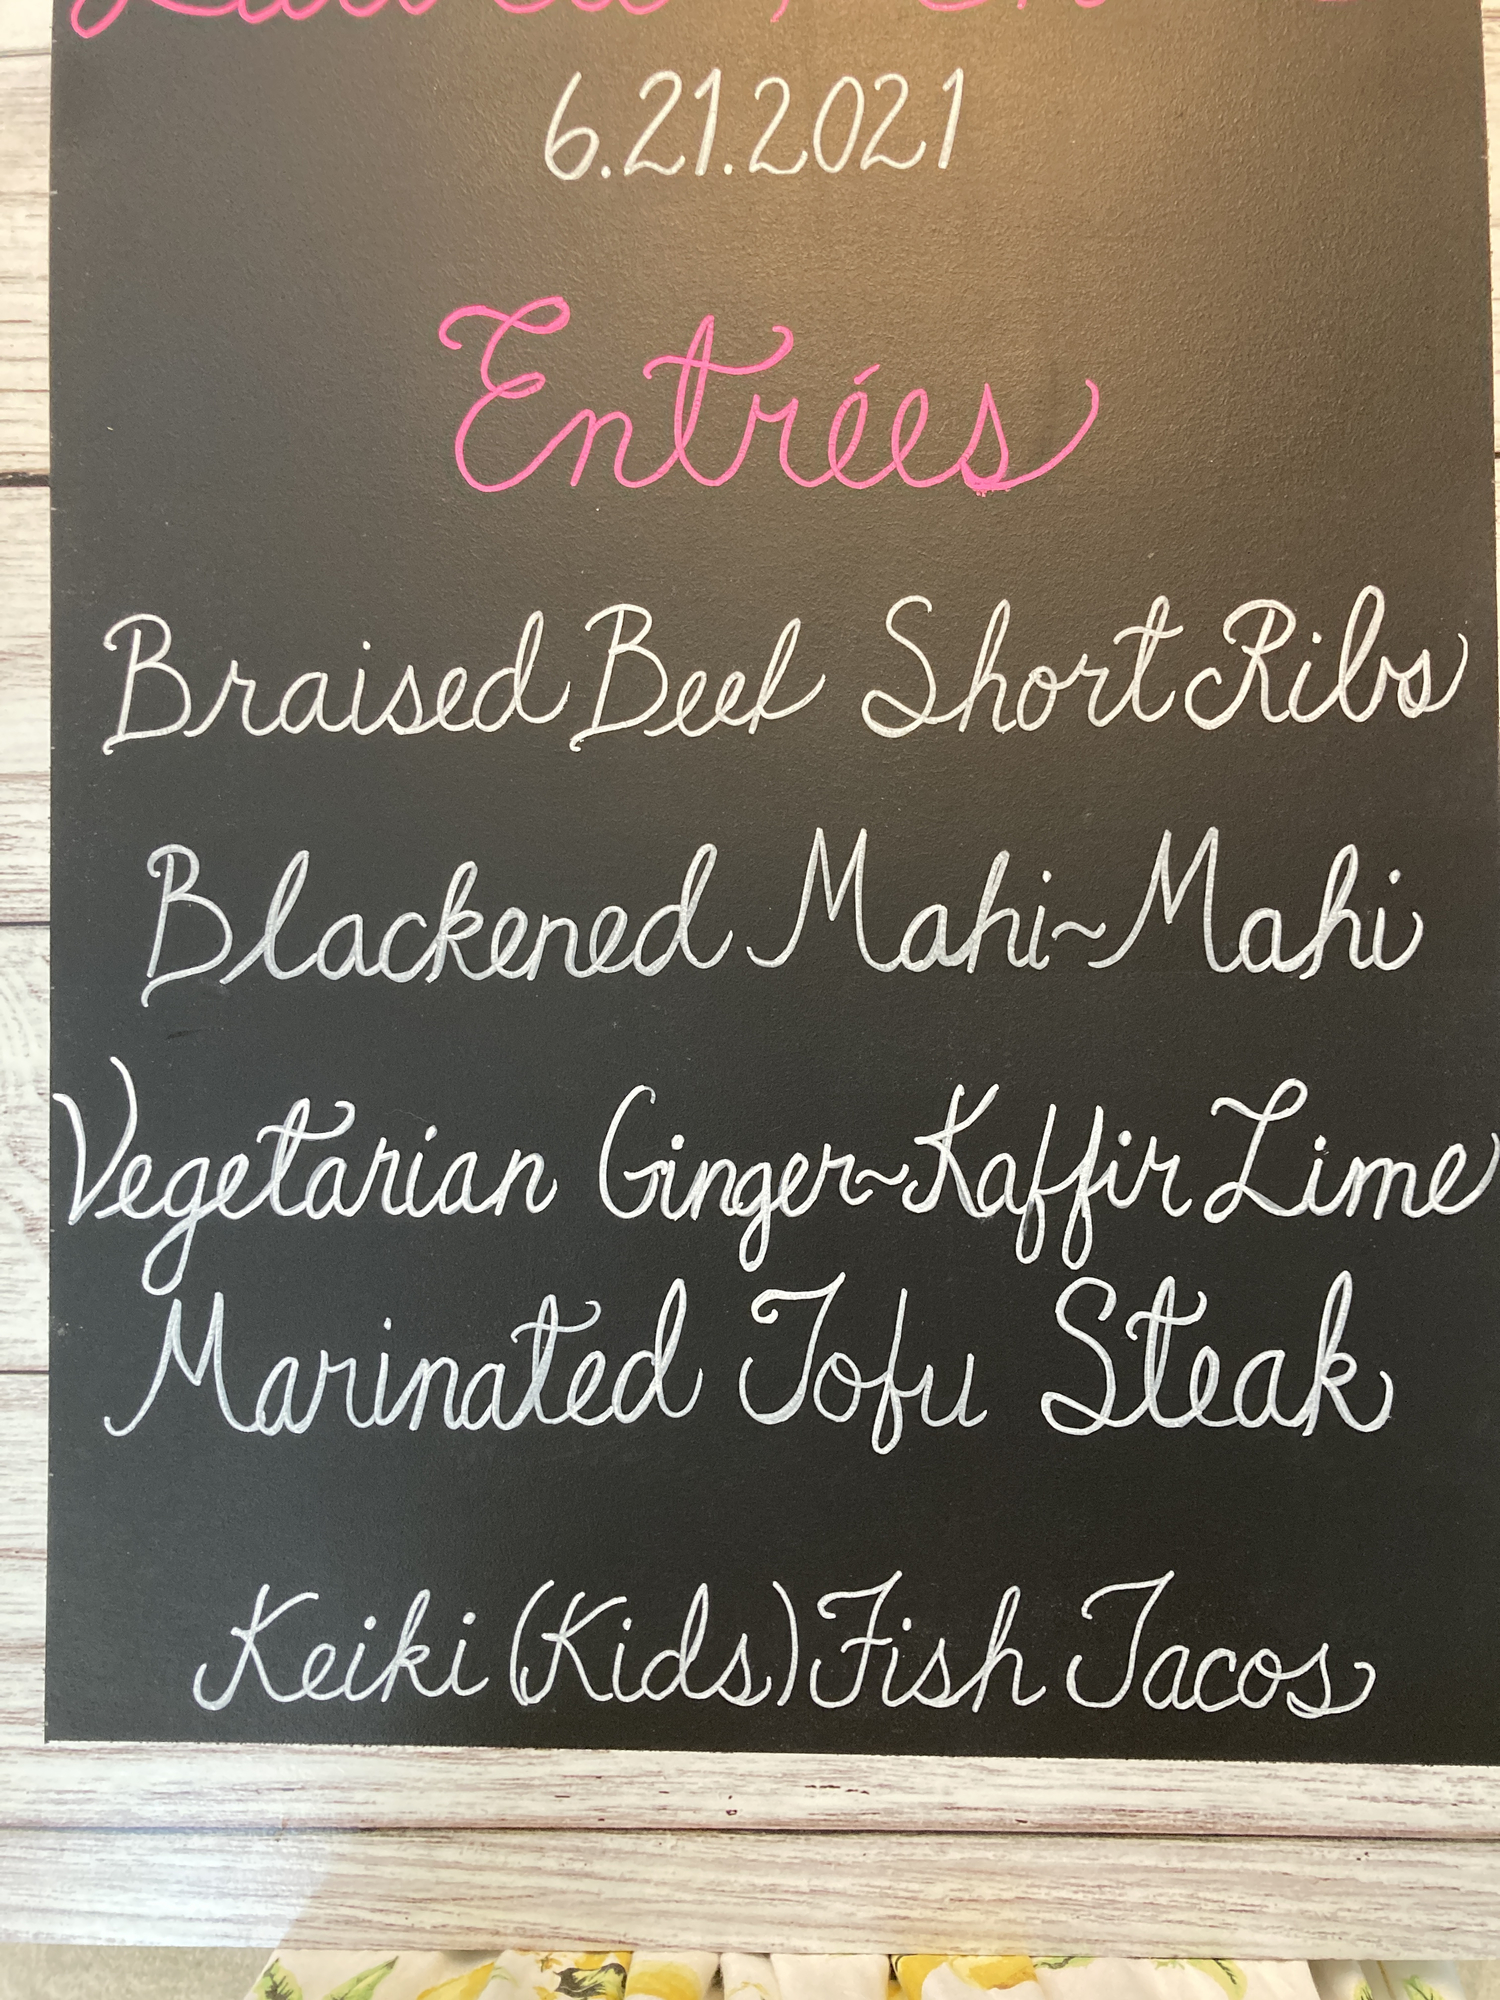 6.21.2021
Entrées
Braised Beef Short Ribs
Blackened Mahi~Mahi
Vegetarian Ginger~Kaffir Lime
Marinated Tofu Steak
Keiki (Kids) Fish Tacos